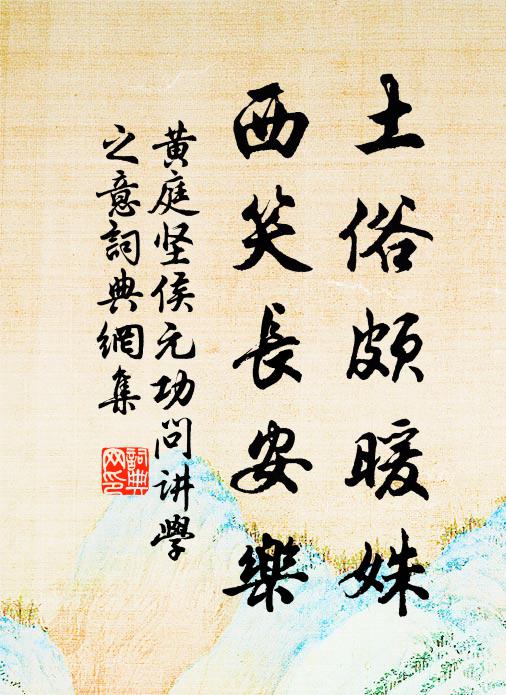 土俗頗暖姝
西笑長安樂
黄庭坚侯元功问讲學
之意詞典網集
詞典
网印